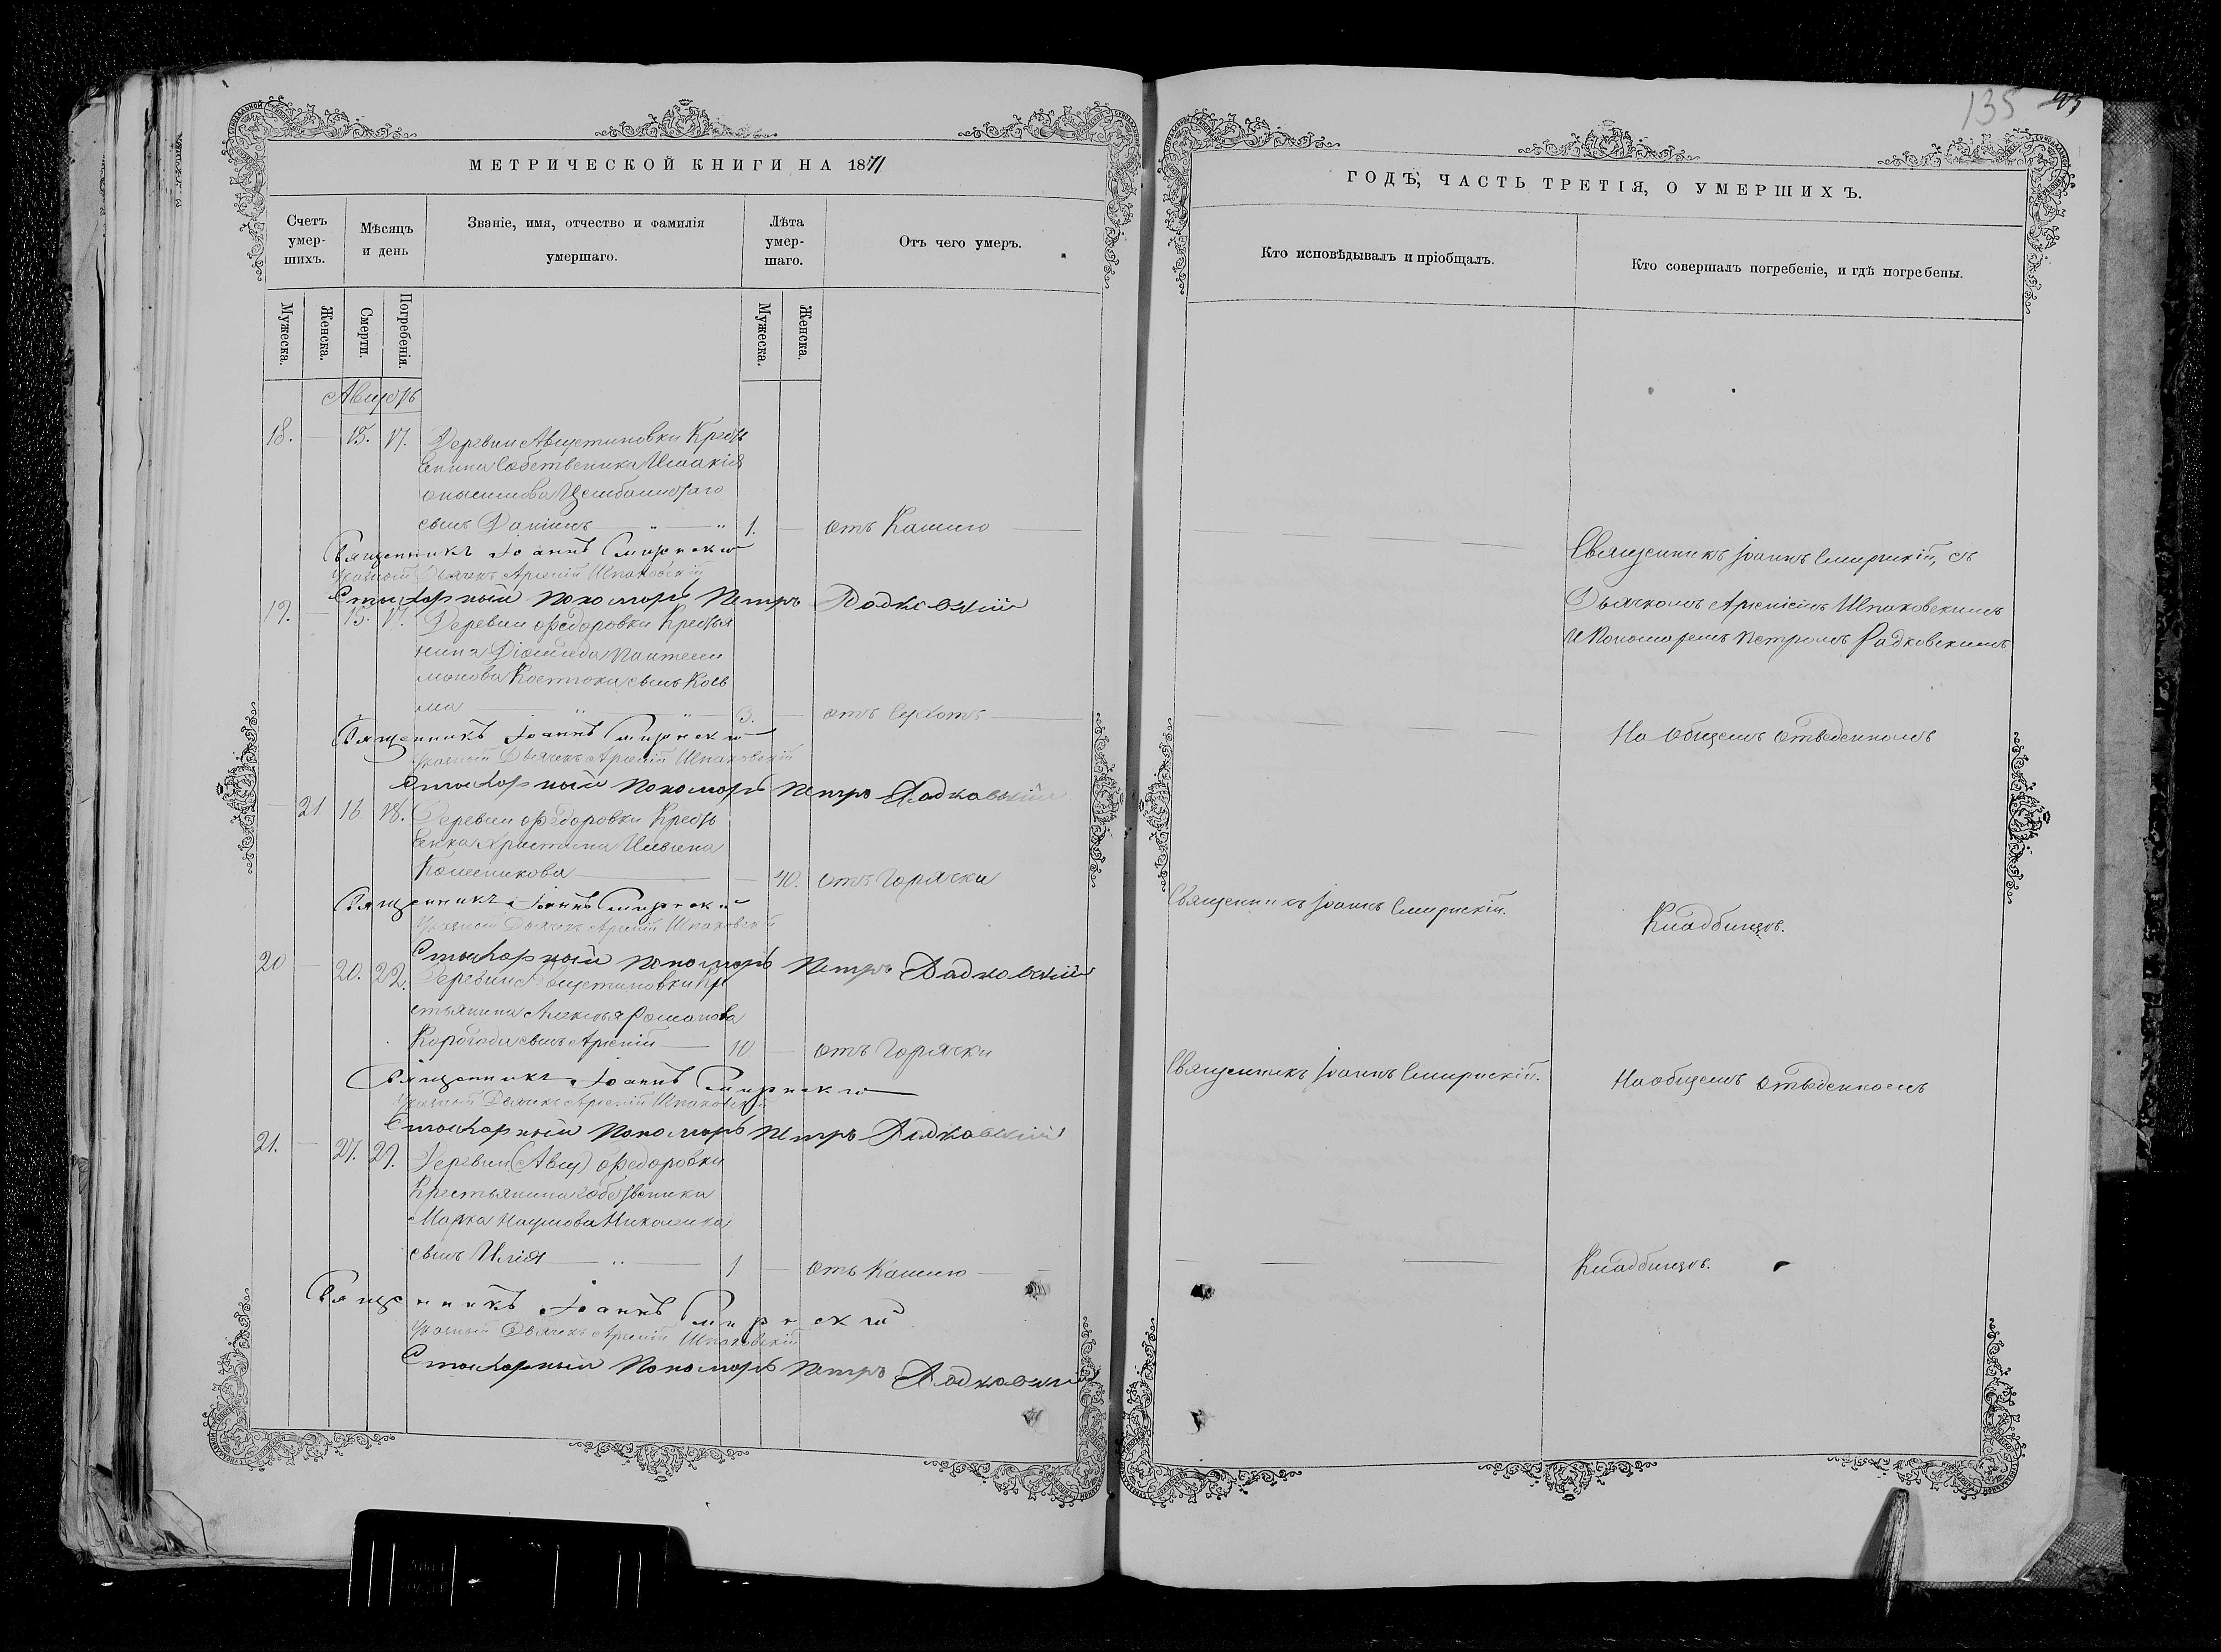 135
МЕТРИЧЕСКОЙ КНИГИ НА 1871
ГОДѢ, ЧАСТЬ ТРЕТІЯ, О УМЕРШИХЪ.
Счетъ умер-шихъ.
Мѣсяцъ и день
Званіе, имя, отчество и фамилія умершаго.
Лѣта умер-шаго.
Отъ чего умеръ.
Кто исповѣдывалъ и пріобщалъ.
Кто совершалъ погребеніе, и гдѣ погребены.
Мужеска.
Женска.
Смерти.
Погребенія.
Мужеска.
Женска.
Августъ
18. 15. 17. Деревни Августиновки Кресть
янина Собственника Исаакія
сынъ Даніилъ 1. отъ Кашлю
Священникъ Іоаннъ Смирнскій
Указный Дьячекъ Арсеній Шпаковскій
Стихарный Пономарь Петръ Радковскій
Священникъ Іоаннъ Смирнскій, съ
Дьячкомъ Арсеніемъ Шпаковскимъ
и Пономаремъ Петромъ Радковскимъ
19. 15. 17. Деревни Федоровки Крестья
нина Діомида Пантелеи
монова Костюка сынъ Кось
ма 3. отъ Сухотъ
На общемъ отведенномъ
Священникъ Іоаннъ Смирнскій
Указный Дьячекъ Арсеній Шпаковскій
Стихарный Пономарь Петръ Радковскій
21 16 18. Деревни Федоровки Кресть
янка Христина Ильина
40. отъ Горячки
Священникъ Іоаннъ Смирнскій.
Кладбищѣ.
Священникъ Іоаннъ Смирнскій
Указный Дьячекъ Арсеній Шпаковскій
Стихарный Пономарь Петръ Радковскій
20 20. 22. Деревни Августиновки Кре
стьянина Алексѣя Романова
Корогода сынъ Арсеній 10 отъ Горячки
Священникъ Іоаннъ Смирнскій.
На общемъ отведенномъ
Священникъ Іоаннъ Смирнскій
Указный Дьячекъ Арсеній Шпаковскій
Стихарный Пономарь Петръ Радковскій
21. 27. 29. Деревни (Авгу) Федоровки
Крестьянина собственника
Марка Наумова Николенка
сынъ Илія 1 отъ Кашлю
Кладбищѣ.
Священникъ Іоаннъ Смирнскій
Указный Дьячекъ Арсеній Шпаковскій
Стихарный Пономарь Петръ Радковскій